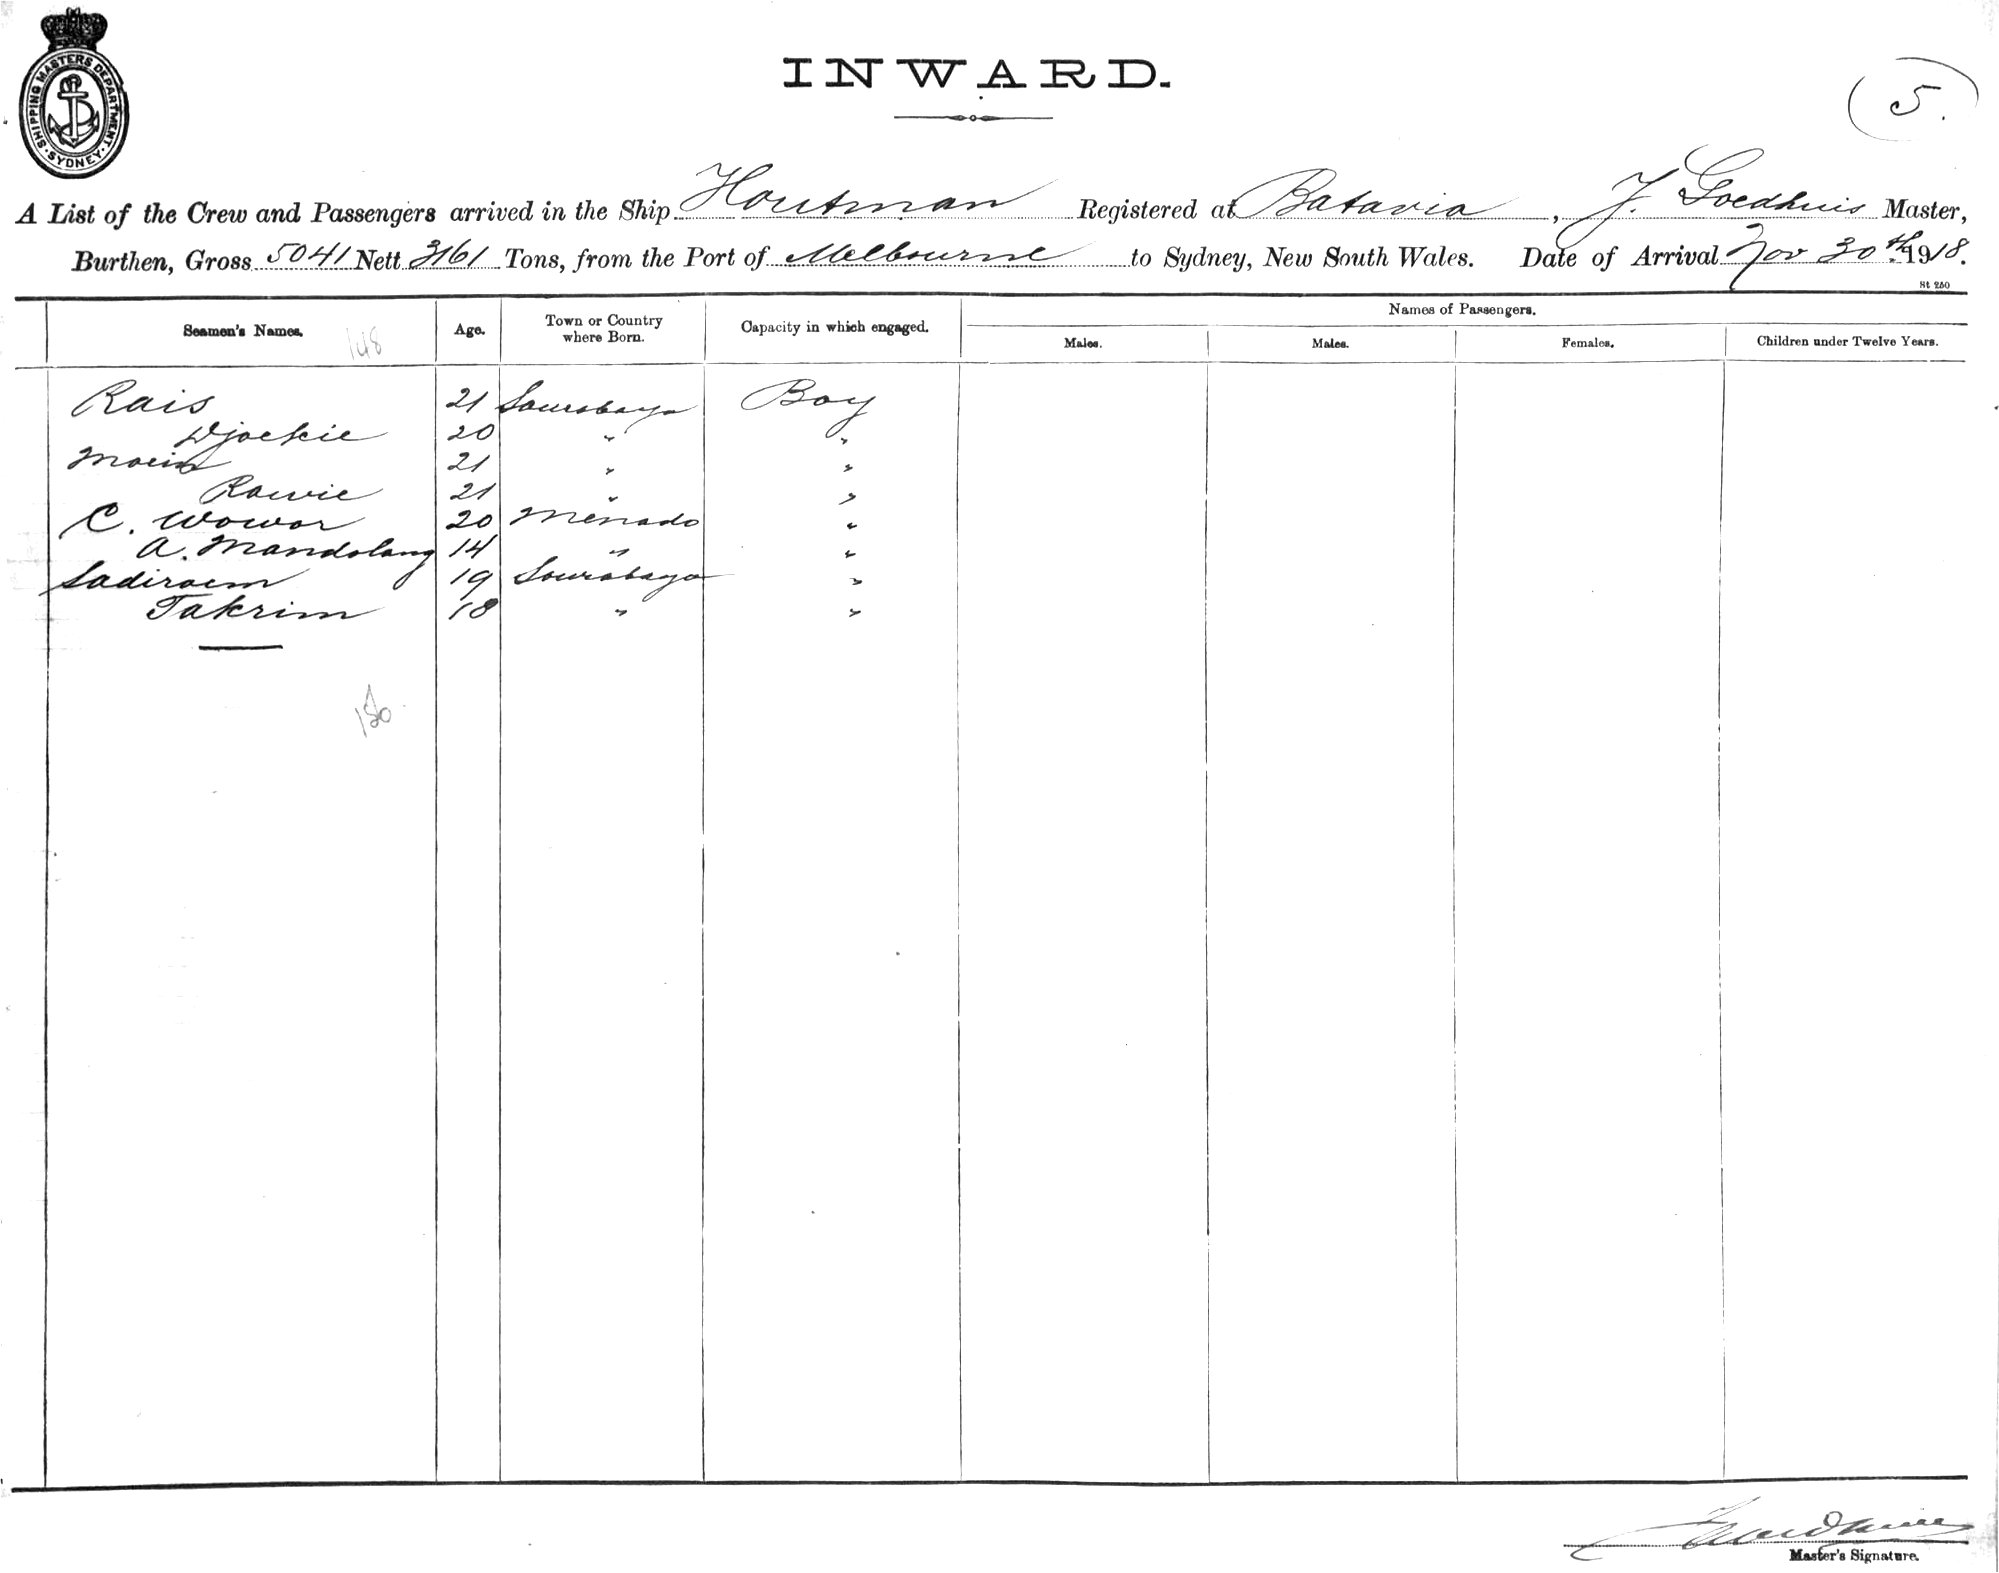 SHIPPING MASTERS DEPARTMENT. SYDNEY.
INWARD.
5.
A List of the Crew and Passengers arrived in the Ship Houtman Registered at Batavia, J. Goedhuis Master,
Burthen, Gross 5041 Nett 3161 Tons, from the Port of Melbourne to Sydney, New South Wales. Date of Arrival Nov 30th 1918.
St 250
Seamen's Names. 148 Age. Town or Country where Born. Capacity in which engaged. Names of Passengers.
Males. Males. Females. Children under Twelve Years.
Rais 21 Sourabaya Boy
Djoekie 20 " "
Moein 21 " "
Rawie 21 " "
C. Wowor 20 Menado "
A. Mandolang 14 " "
Sadiroem 19 Sourabaya "
Takrim 18 " "
Master's Signature.